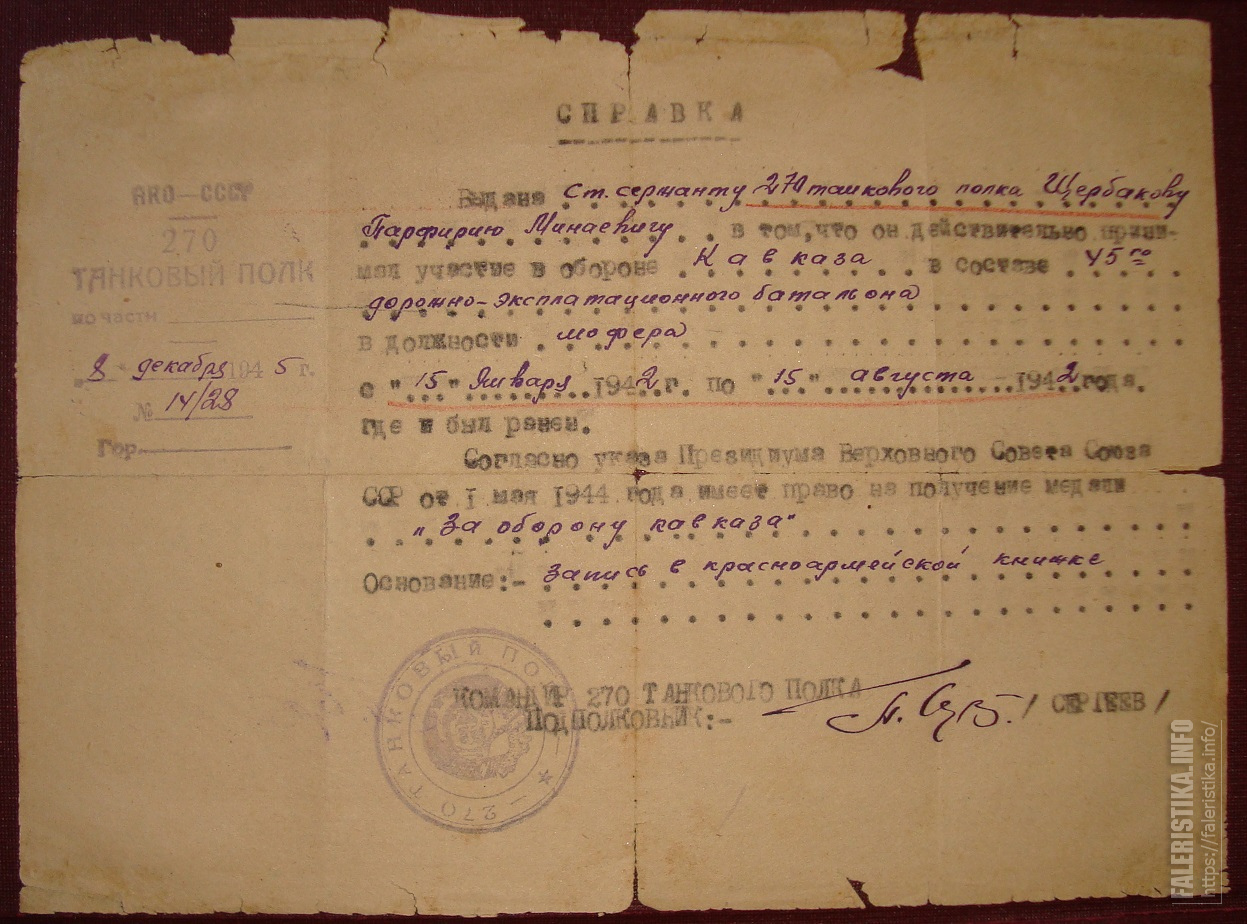 СПРАВКА
НКО—СССР
270
ТАНКОВЫЙ ПОЛК
по части
„ 8 " декабря 1945 г.
№ 14/28
Гор.
Выдана ст. сержанту 270 танкового полка Щербакову
Парфирию Минаевичу . . в том,что он действительно прини-
мал участие в обороне Кавказа в составе 45го
дорожно-эксплатационного батальона
в должности шофера
с "15" Января 1942 г. по "15" августа 1942 года.
где и был ранен.
Согласно указа Президиума Верховного Совета Союза
ССР от I мая 1944 года имеет право на получение медали
„За оборону кавказа"
Основание:- Запись в красноармейской книжке
КОМАНДИР 270 ТАНКОВОГО ПОЛКА
ПОДПОЛКОВНИК:- / СЕРГЕЕВ /
270 ТАНКОВЫЙ ПОЛК
FALERISTIKA.INFO
https://faleristika.info/